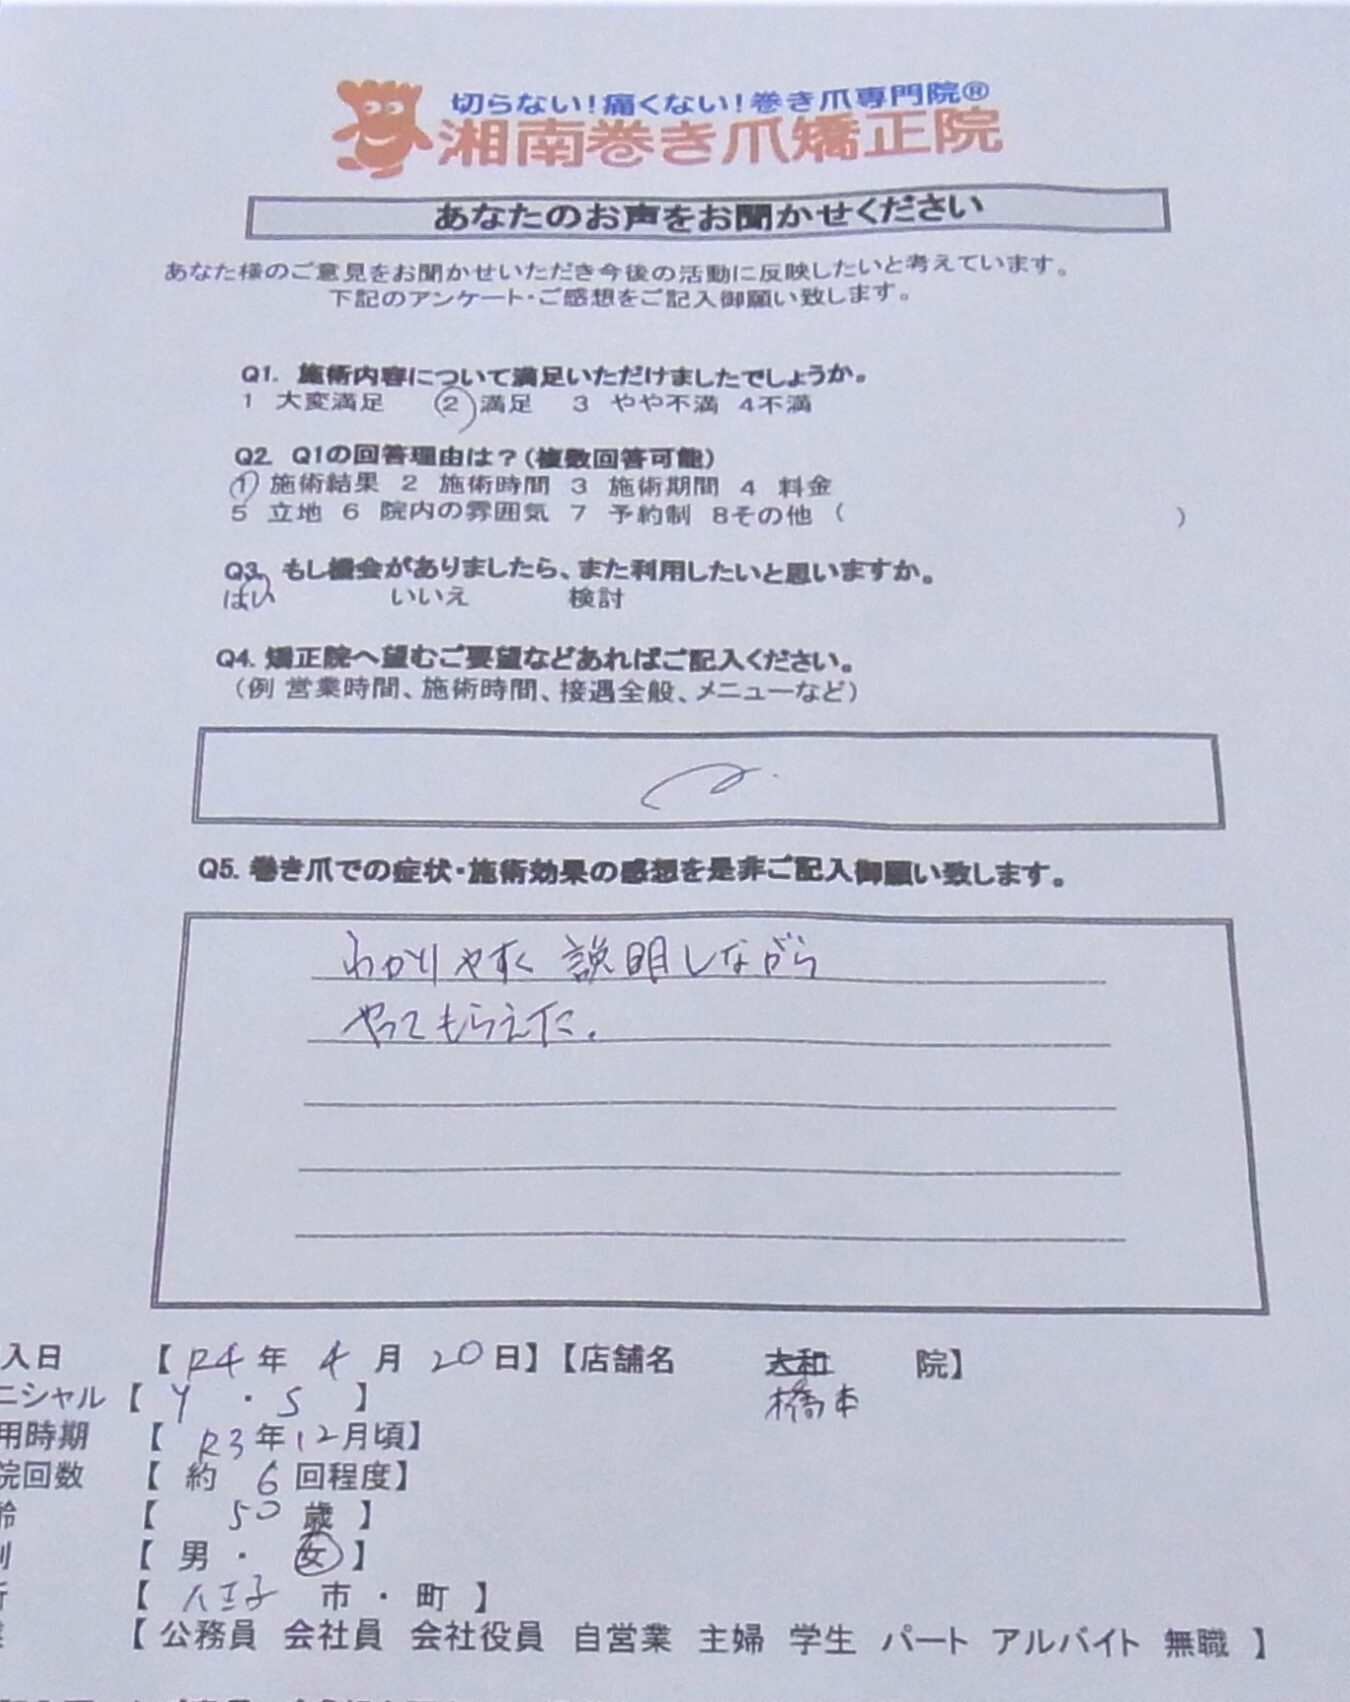 切らない！痛くない！巻き爪専門院®
湘南巻き爪矯正院
あなたのお声をお聞かせください
あなた様のご意見をお聞かせいただき今後の活動に反映したいと考えています。
下記のアンケート・ご感想をご記入御願い致します。
Q1. 施術内容について満足いただけましたでしょうか。
1 大変満足 2 満足 3 やや不満 4不満
Q2. Q1の回答理由は？（複数回答可能）
1 施術結果 2 施術時間 3 施術期間 4 料金
5 立地 6 院内の雰囲気 7 予約制 8その他（ ）
Q3. もし機会がありましたら、また利用したいと思いますか。
はい いいえ 検討
Q4. 矯正院へ望むご要望などあればご記入ください。
（例 営業時間、施術時間、接遇全般、メニューなど）
Q5. 巻き爪での症状・施術効果の感想を是非ご記入御願い致します。
わかりやすく説明しながら
やってもらえた。
入日 【 R4 年 4 月 20 日】【店舗名 大和 院】
橋本
ニシャル【 Y ・ S 】
用時期 【 R3年12月頃】
院回数 【 約 6 回程度】
齢 【 50 歳 】
別 【 男 ・ 女 】
所 【 八王子 市 ・ 町 】
業 【 公務員 会社員 会社役員 自営業 主婦 学生 パート アルバイト 無職 】